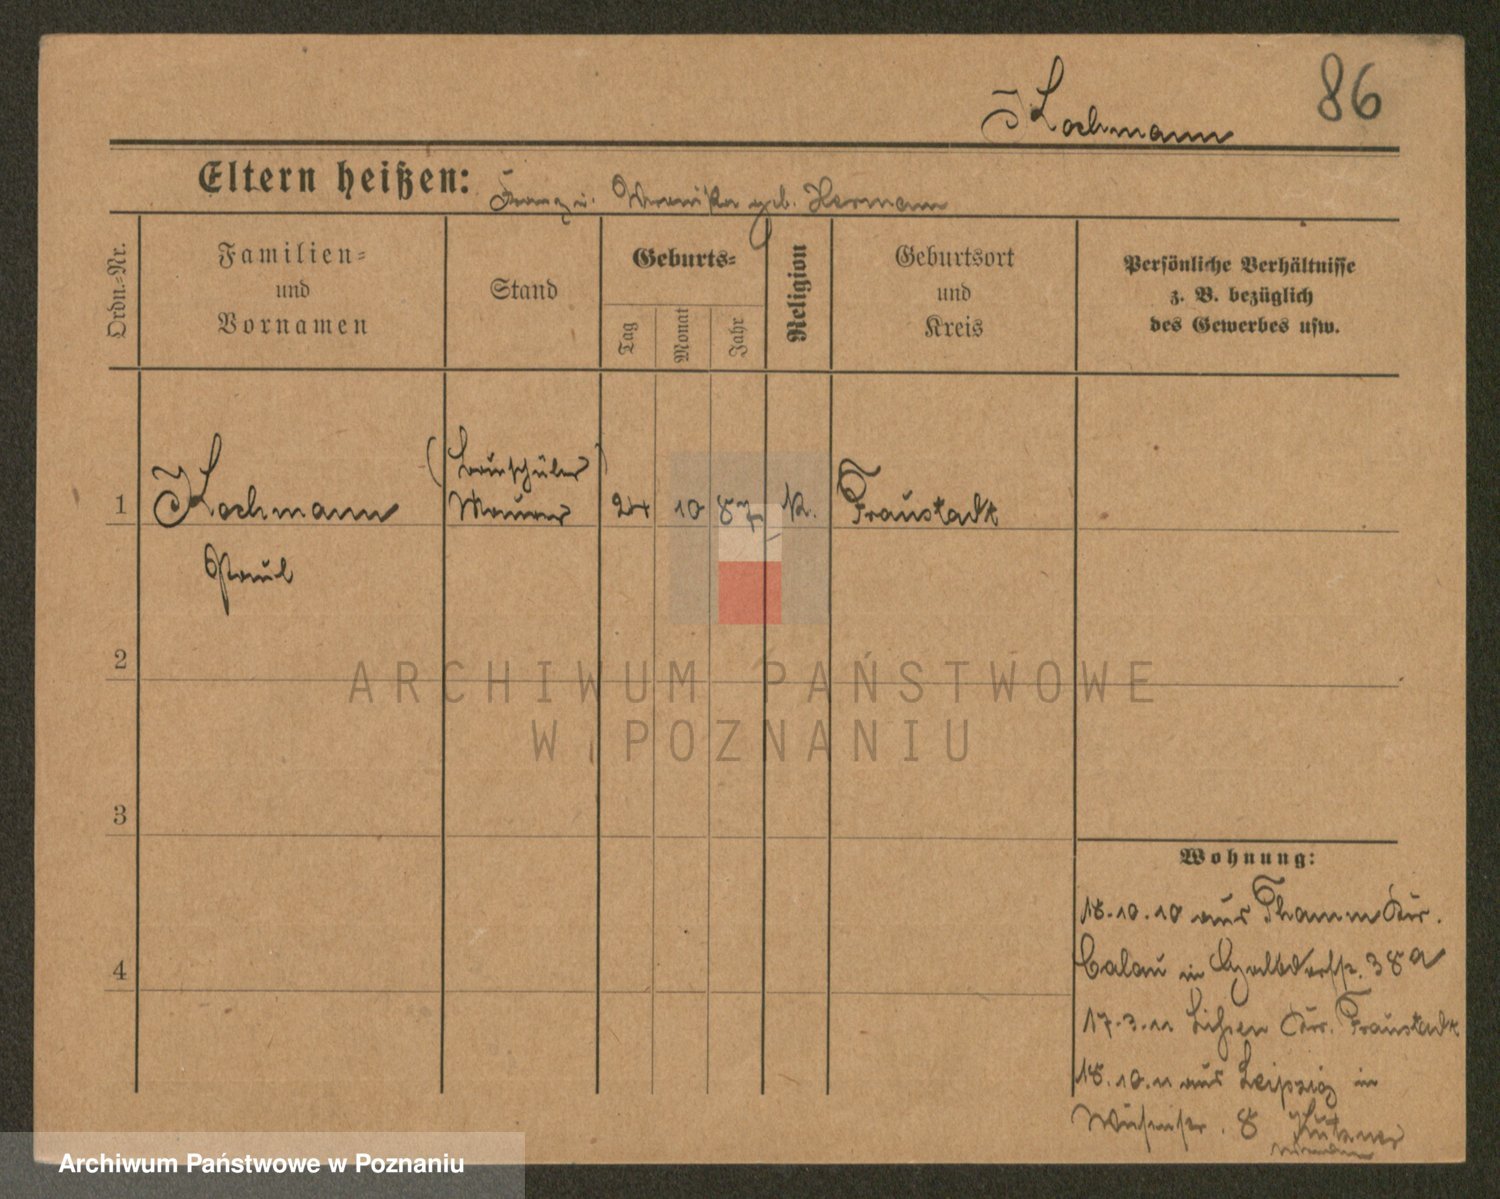 86
Lochmann
Eltern heißen: Franz u. Veronika geb. Hermann
Ordn.=Nr.
Familien=
und
Vornamen
Stand
Geburts=
Tag
Monat
Jahr
Religion
Geburtsort
und
Kreis
Persönliche Verhältnisse
z. B. bezüglich
des Gewerbes usw.
(Bauschüler)
1 Lochmann Maurer 24 10 87 k. Fraustadt
Paul
2
ARCHIWUM PAŃSTWOWE
W POZNANIU
3
Wohnung:
18.10.10 aus Thamm Kr.
Calau in 38a
17.3.11 Kr. Fraustadt
18.10.11 aus Leipzig in
Wiesenstr. 8
4
Archiwum Państwowe w Poznaniu